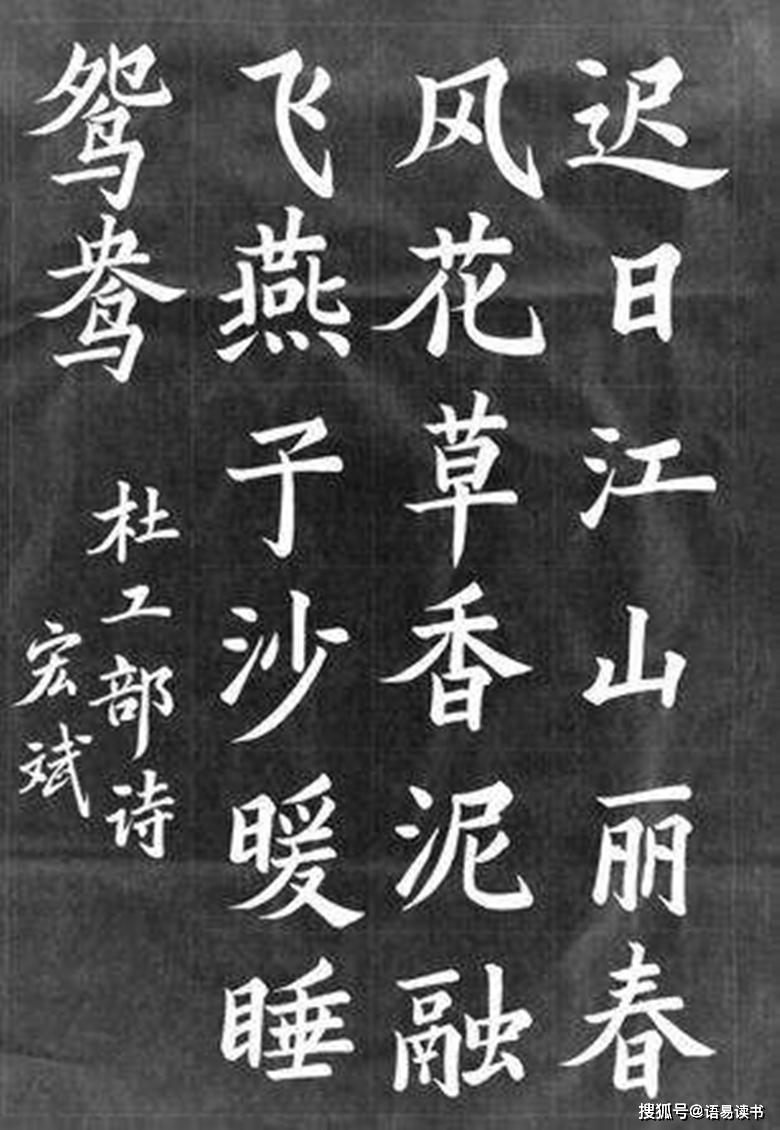 迟日江山丽春
风花草香泥融
飞燕子沙暖睡
鸳鸯
杜工部诗
宏斌
搜狐号@语易读书